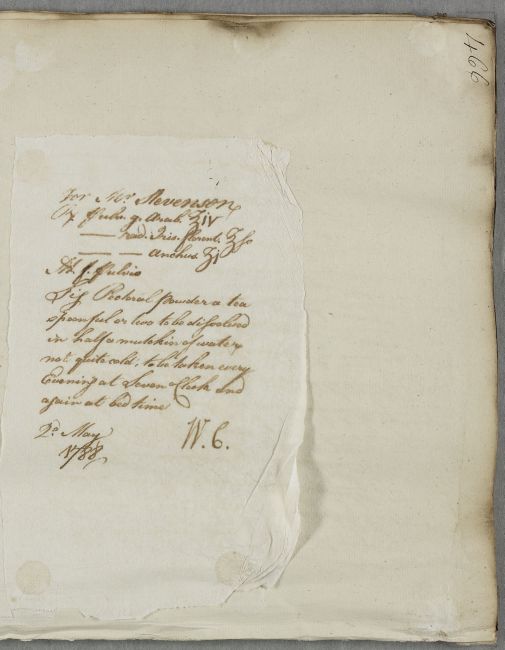 466
For Mr. Stevenson
℞ Pulv. g. Arab. ʒiv
— rad. Iris. florent. ʒſs
— — anchus. ʒi
M. f. Pulvis
Sig. Pectoral powder a tea
spoonful or two to be disolved
in half a mutchkin of water
not quite cold, to be taken every
Evening at Seven oClock and
again at bed time
2d. May W. C.
1788